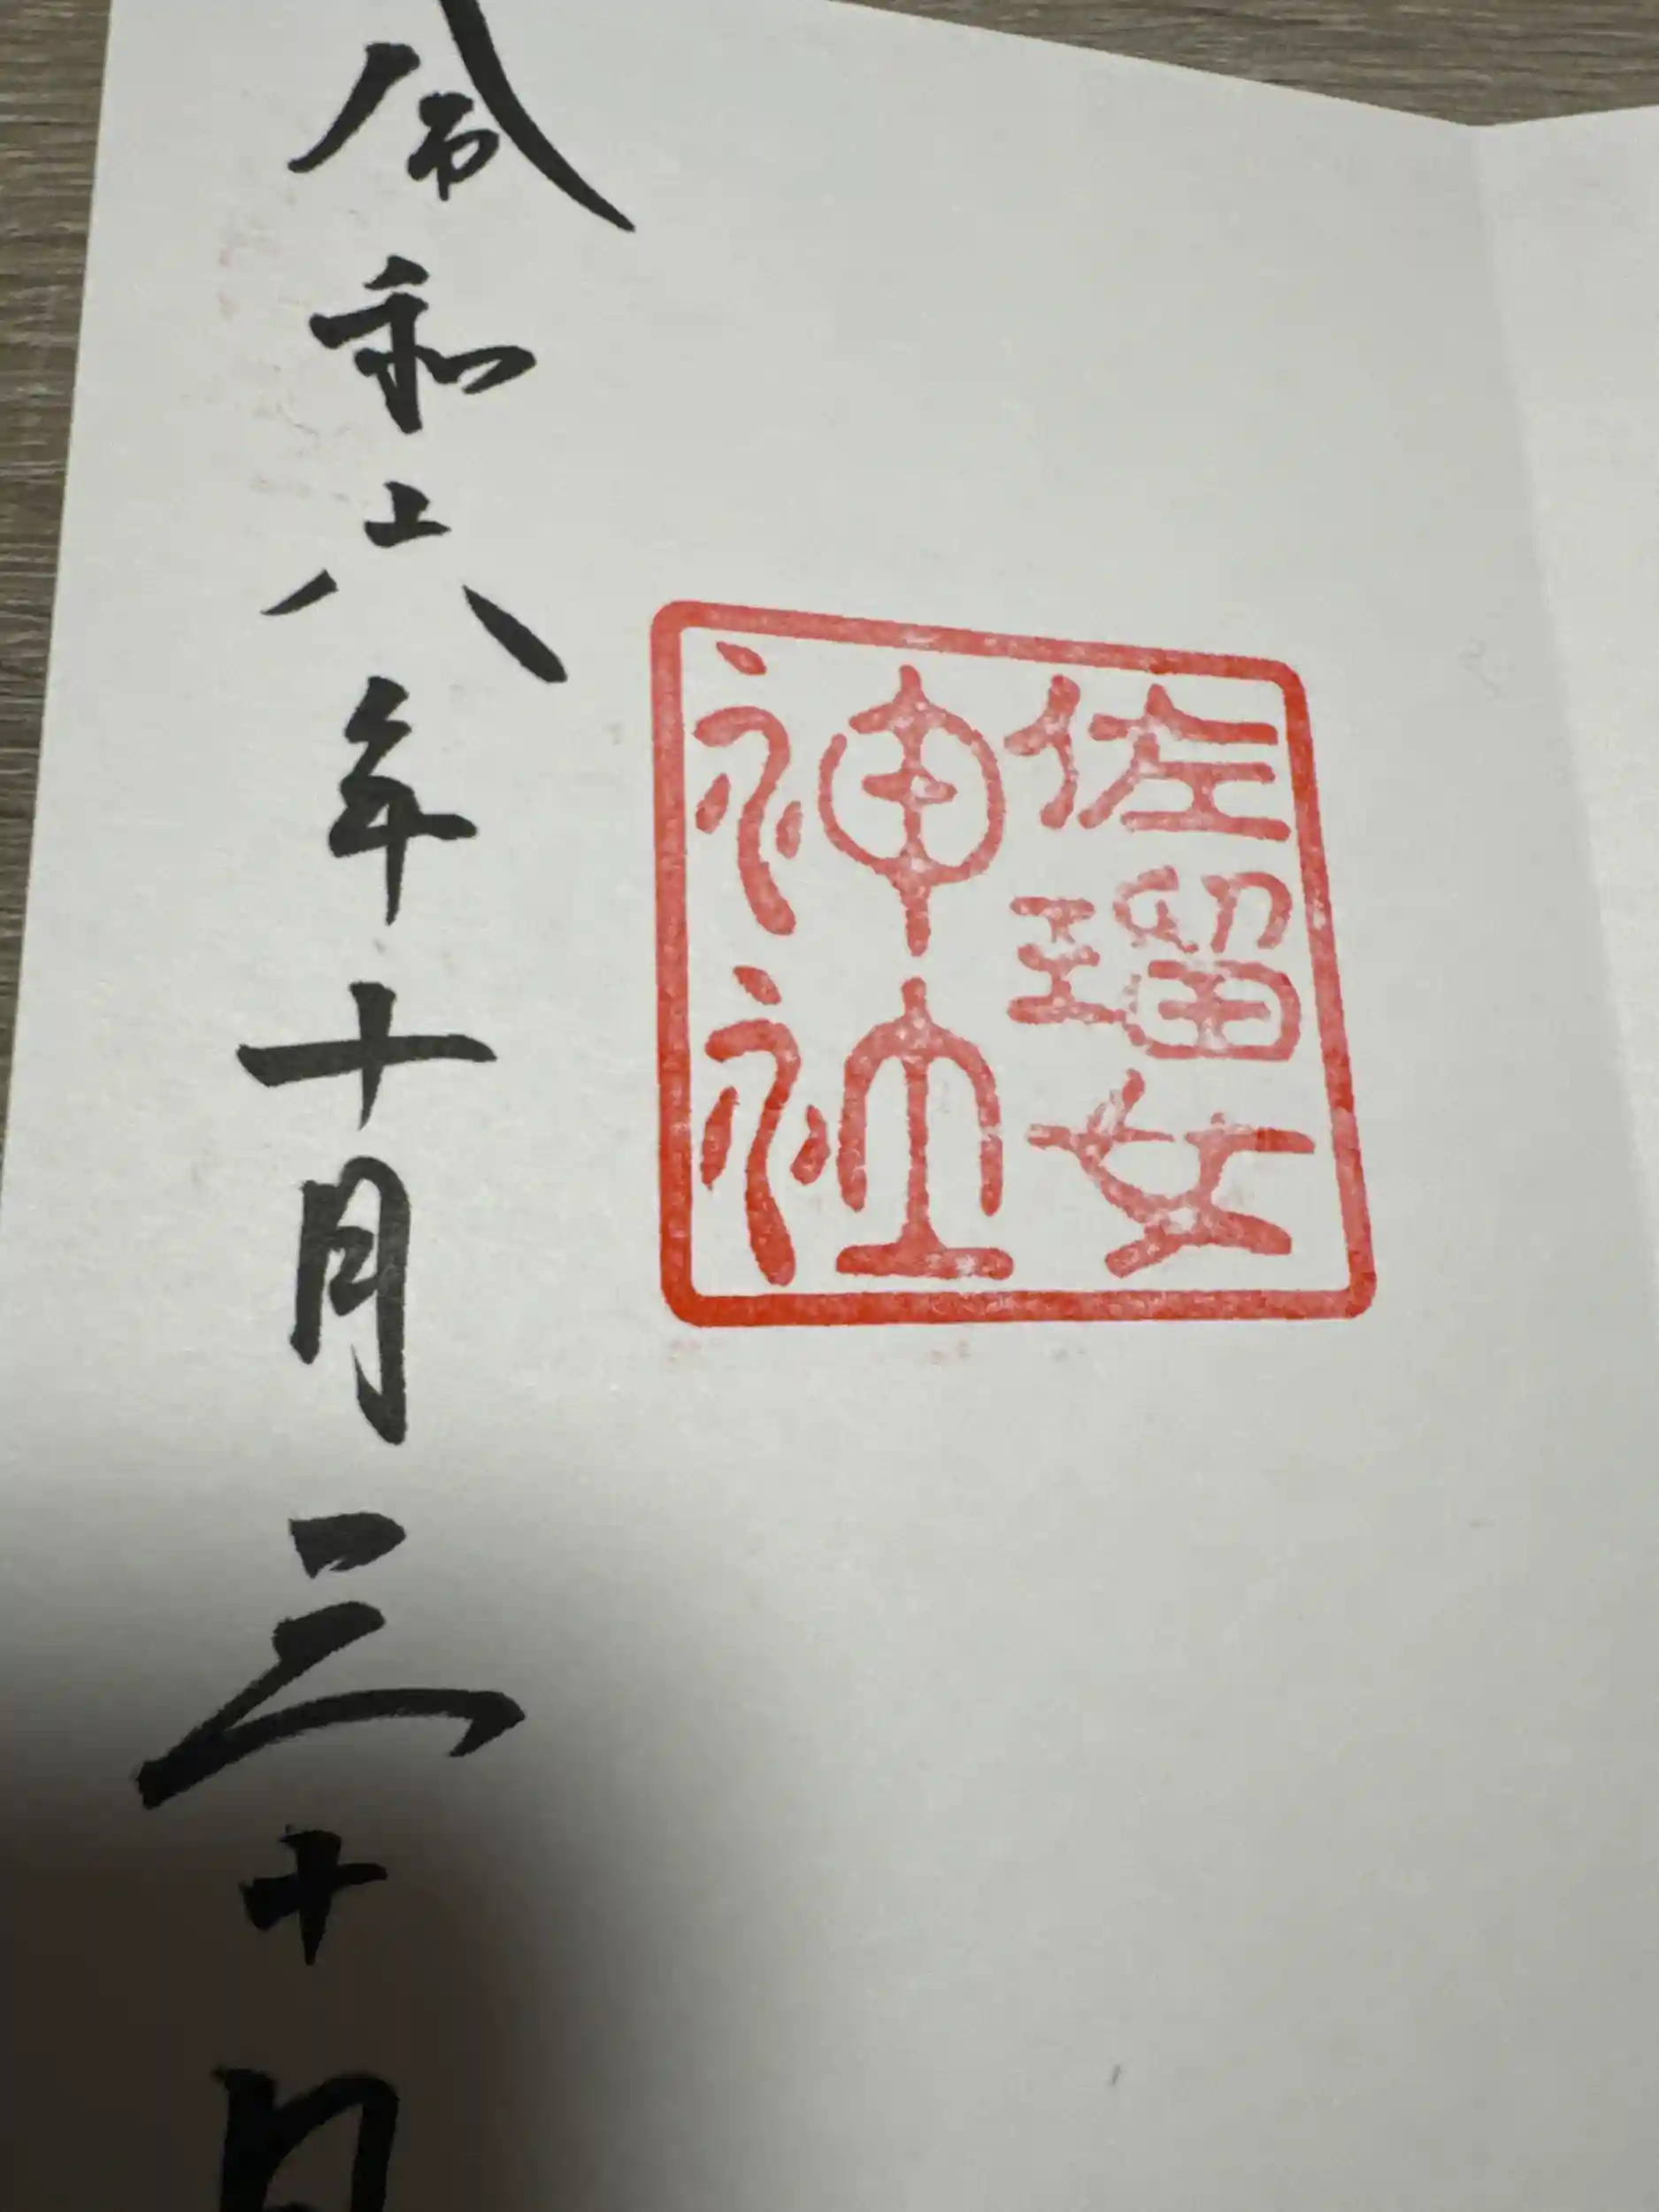 佐瑠女
神社
令和六年十月三十日